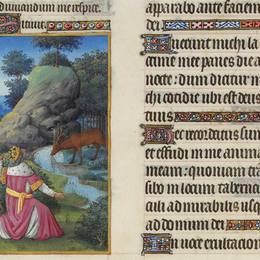 diuuandum me respice.
apparabo ante faciem
dei
Fuerunt michi la
crime mee panes die a
nocte: dum dicitur m
chi cotidie ubi est deus
tuus
Hec recordatus sum
et effudi in me anima
meam: quoniam trans
sibo in locum taberna
culi admirabilis usq
ad domum dei
In uoce exultacion